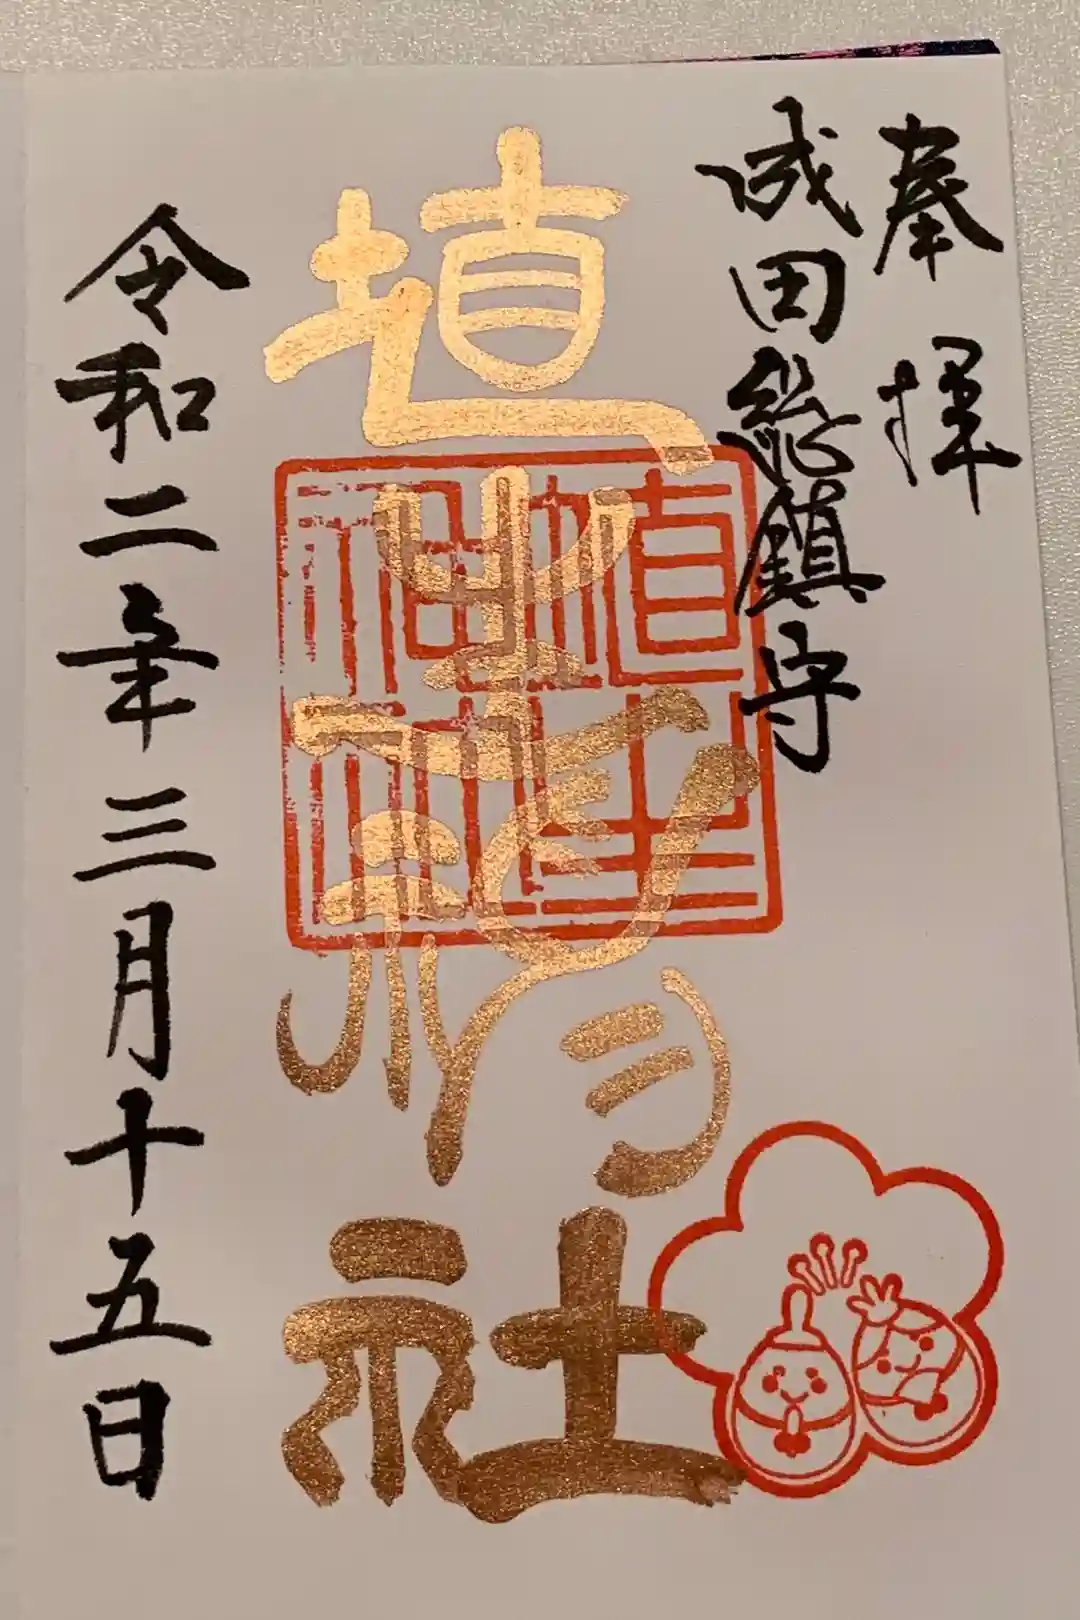 奉拝
成田総鎮守
埴生神社
令和二年三月十五日